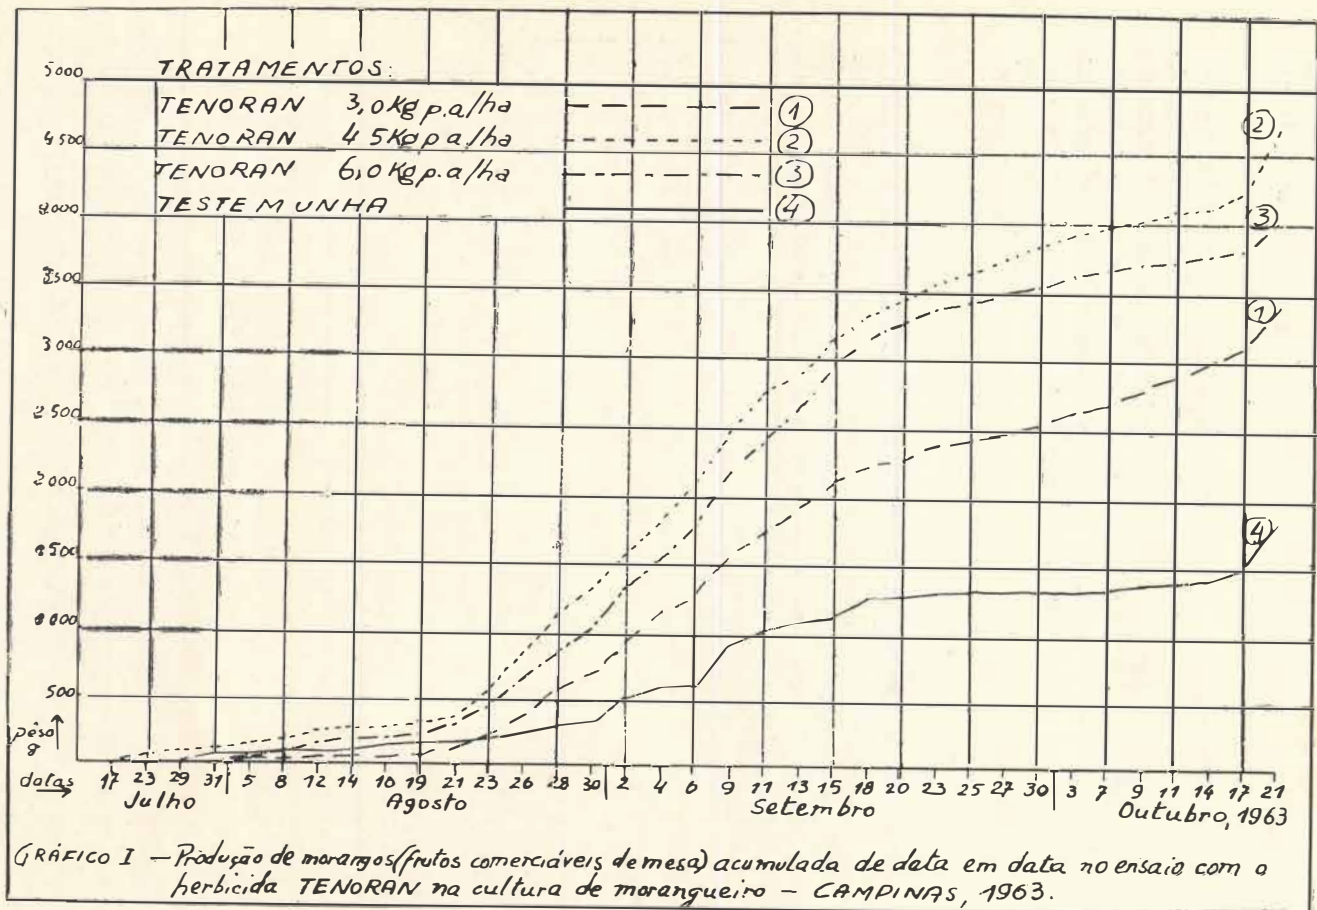 TRATAMENTOS:
TENORAN 3,0Kg p.a/ha ①
TENORAN 4 5Kg p a/ha ②
TENORAN 6,0Kg p.a/ha ③
TESTEMUNHA ④
5000
4 500
4 000
3 500
3 000
2 500
2 000
1 500
1 000
500
②
③
①
④
pêso
g
datas
17 23 29 31 5 8 12 14 16 19 21 23 26 28 30 2 4 6 9 11 13 15 18 20 23 25 27 30 3 7 9 11 14 17 21
Julho Agosto Setembro Outubro, 1963
GRÁFICO I — Produção de morangos (frutos comerciáveis de mesa) acumulada de data em data no ensaio com o
herbicida TENORAN na cultura de morangueiro — CAMPINAS, 1963.